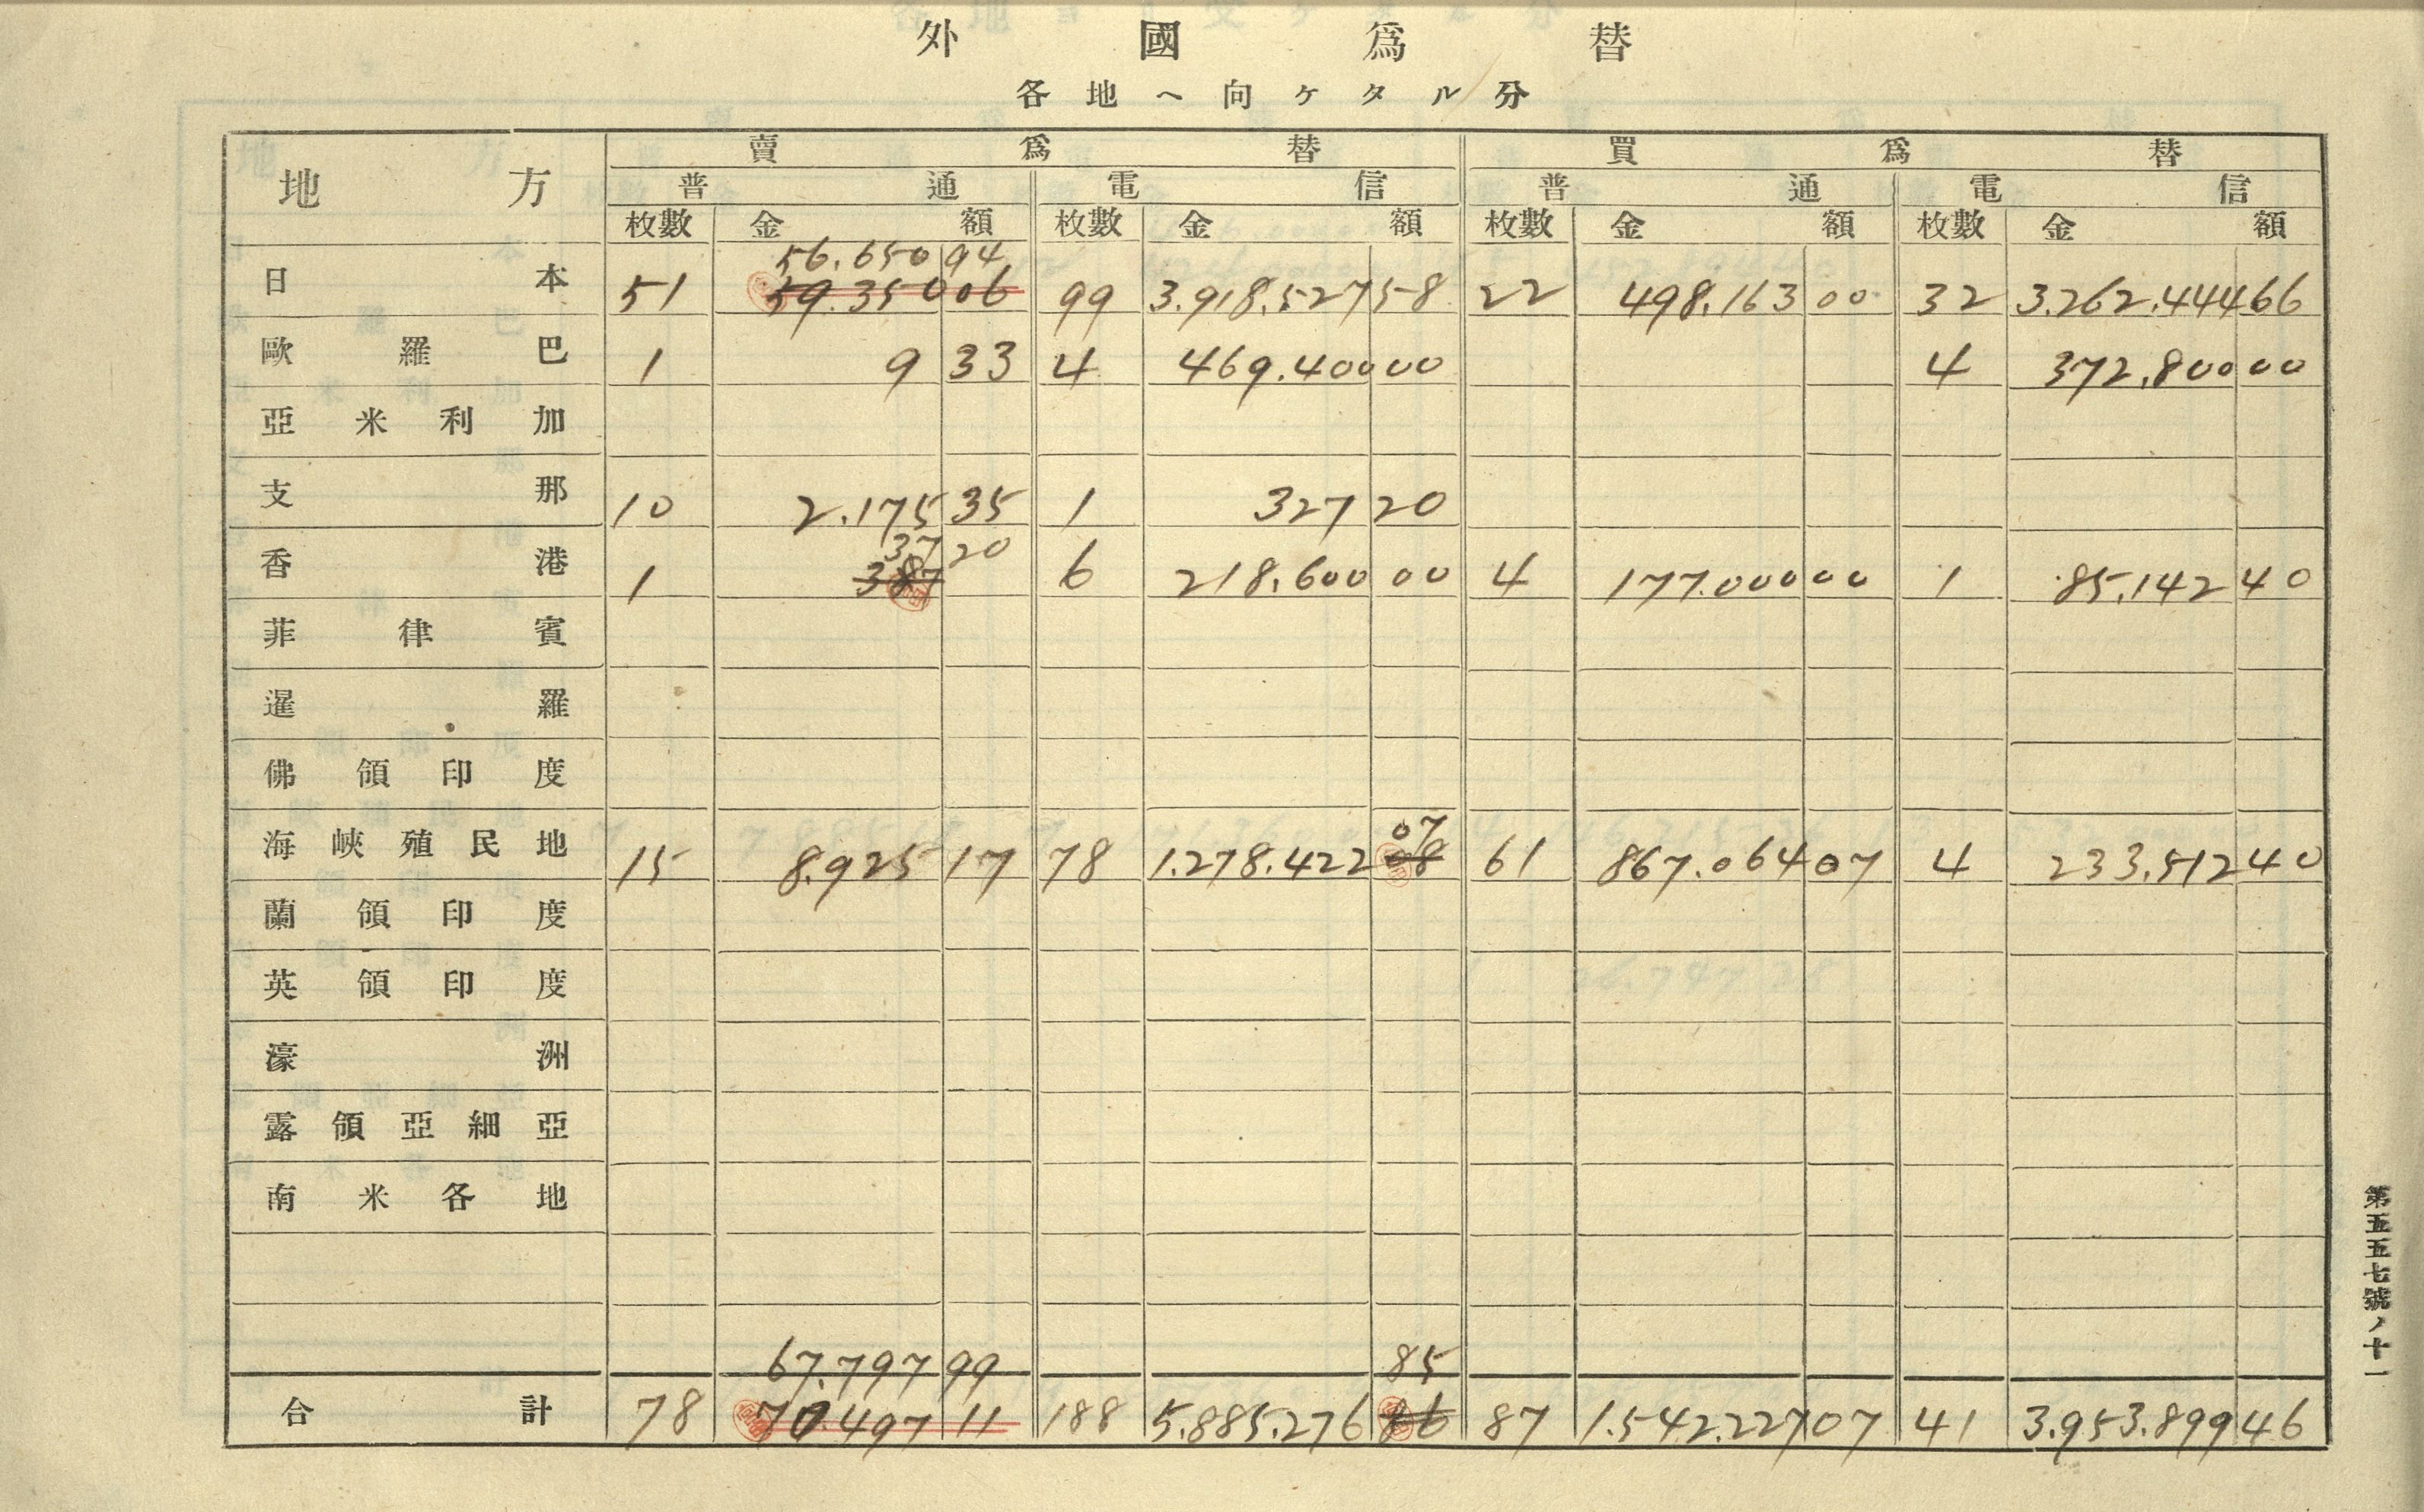 外國爲替
各地ヘ向ケタル分
地方 賣爲替 買爲替
普通 電信 普通 電信
枚數 金額 枚數 金額 枚數 金額 枚數 金額
56.650 94
日本 51 59.350 06 99 3.918.527 58 22 498.163 00 32 3.262.444 66
歐羅巴 1 9 33 4 469.400 00 4 372.800 00
亞米利加
支那 10 2.175 35 1 327 20
37 20
香港 1 387 6 218.600 00 4 177.000 00 1 85.142 40
菲律賓
暹羅
佛領印度
07
海峽殖民地 15 8.925 17 78 1.278.422 08 61 867.064 07 4 233.512 40
蘭領印度
英領印度
濠洲
露領亞細亞
南米各地
67.797 99 85
合計 78 70.497 11 188 5.885.276 86 87 1.542.227 07 41 3.953.899 46
第五五七號ノ十一